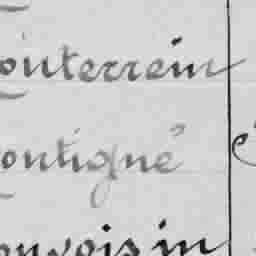 ointerrein
ontigné
onvoisin